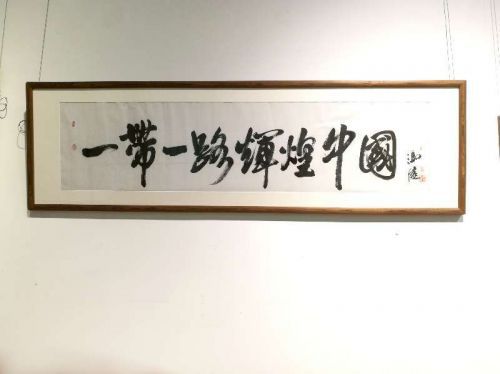 一帶一路輝煌中國